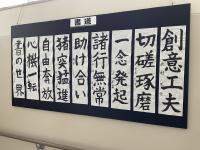 書道
創意工夫
切磋琢磨
一念発起
諸行無常
助け合い
猪突猛進
自由奔放
心機一転
書の世界